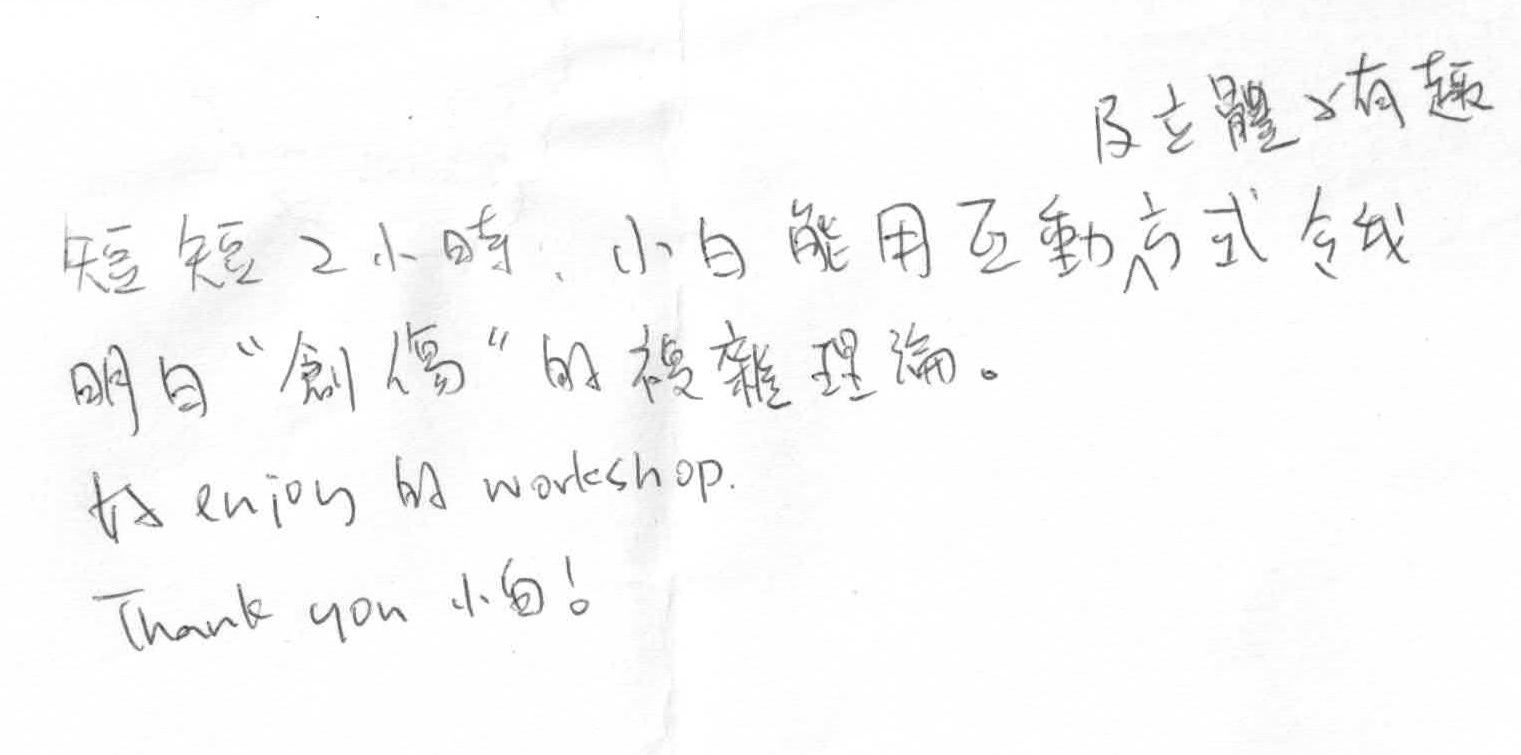 及立體、有趣
短短2小時，小白能用互動方式令我
明白“創傷“的複雜理論。
好enjoy的workshop.
Thank you 小白！